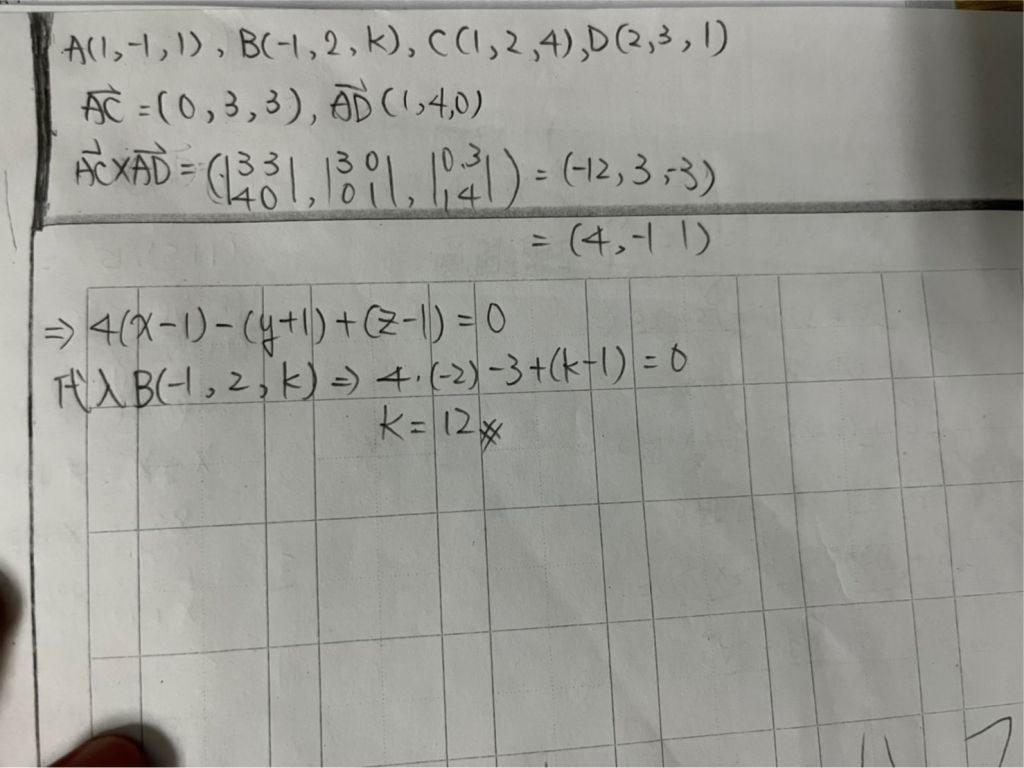 A(1,-1,1), B(-1,2,k), C(1,2,4), D(2,3,1)
AC→ =(0,3,3), AD→ (1,4,0)
AC→×AD→ = (|3 3 / 4 0|, |3 0 / 0 1|, |0 3 / 1 4|) = (-12,3,-3)
= (4,-1 1)
⇒ 4(x-1)-(y+1)+(z-1)=0
代入B(-1,2,k) ⇒ 4·(-2)-3+(k-1)=0
k=12